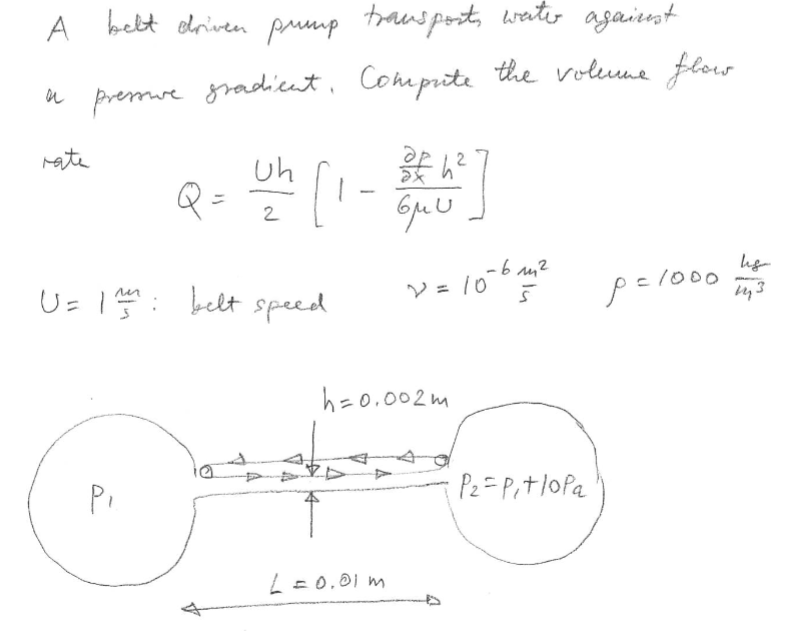 A belt driven pump transports water against
a pressure gradient. Compute the volume flow
rate
Q = Uh/2 [1 - ∂p/∂x h²/6μU]
U = 1 m/s : belt speed ν = 10⁻⁶ m²/s ρ = 1000 kg/m³
h=0.002m
P₁
P₂=P₁+10Pa
L = 0.01 m